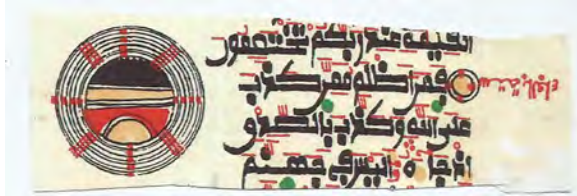 القيمة عند ربكم تختصمون
فمن اظلم ممن كذب
على الله وكذب بالصدق
اذ جاءه اليس في جهنم